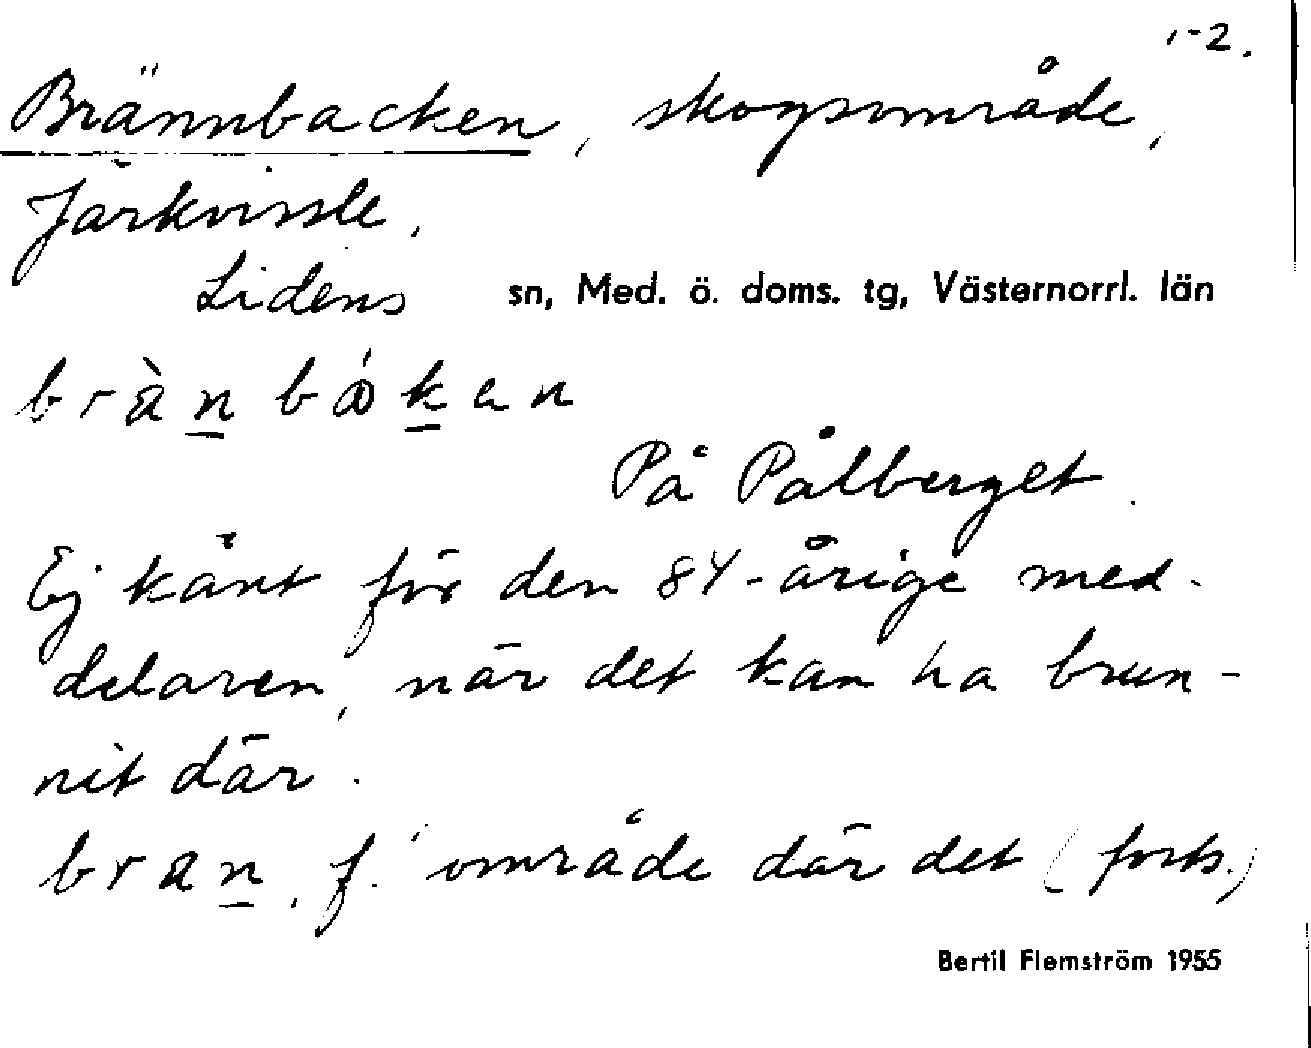 1-2.
Brännbacken, skogsområde,
Järkvissle,
Lidens sn, Med. ö. doms. tg, Västernorrl. län
På Pålberget.
Ej känt för den 84-årige med-
delaren, när det kan ha brun-
nit där.
bran, f. 'område där det (forts.)
Bertil Flemström 1955